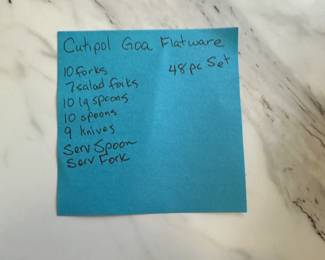 Cutipol Goa Flatware
10 forks
48 pc Set
7 salad forks
10 lg spoons
10 spoons
9 knives
Serv Spoon
Serv Fork